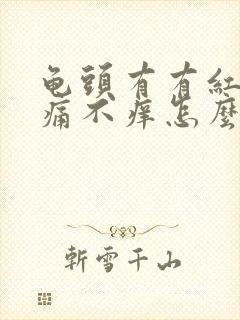 龟頭有有紅
痛不痒怎麽
斬雪千山